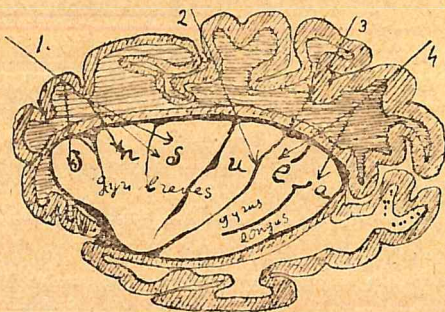 1. 2 3 4
J n s u l a
gyri breves
gyrus
longus